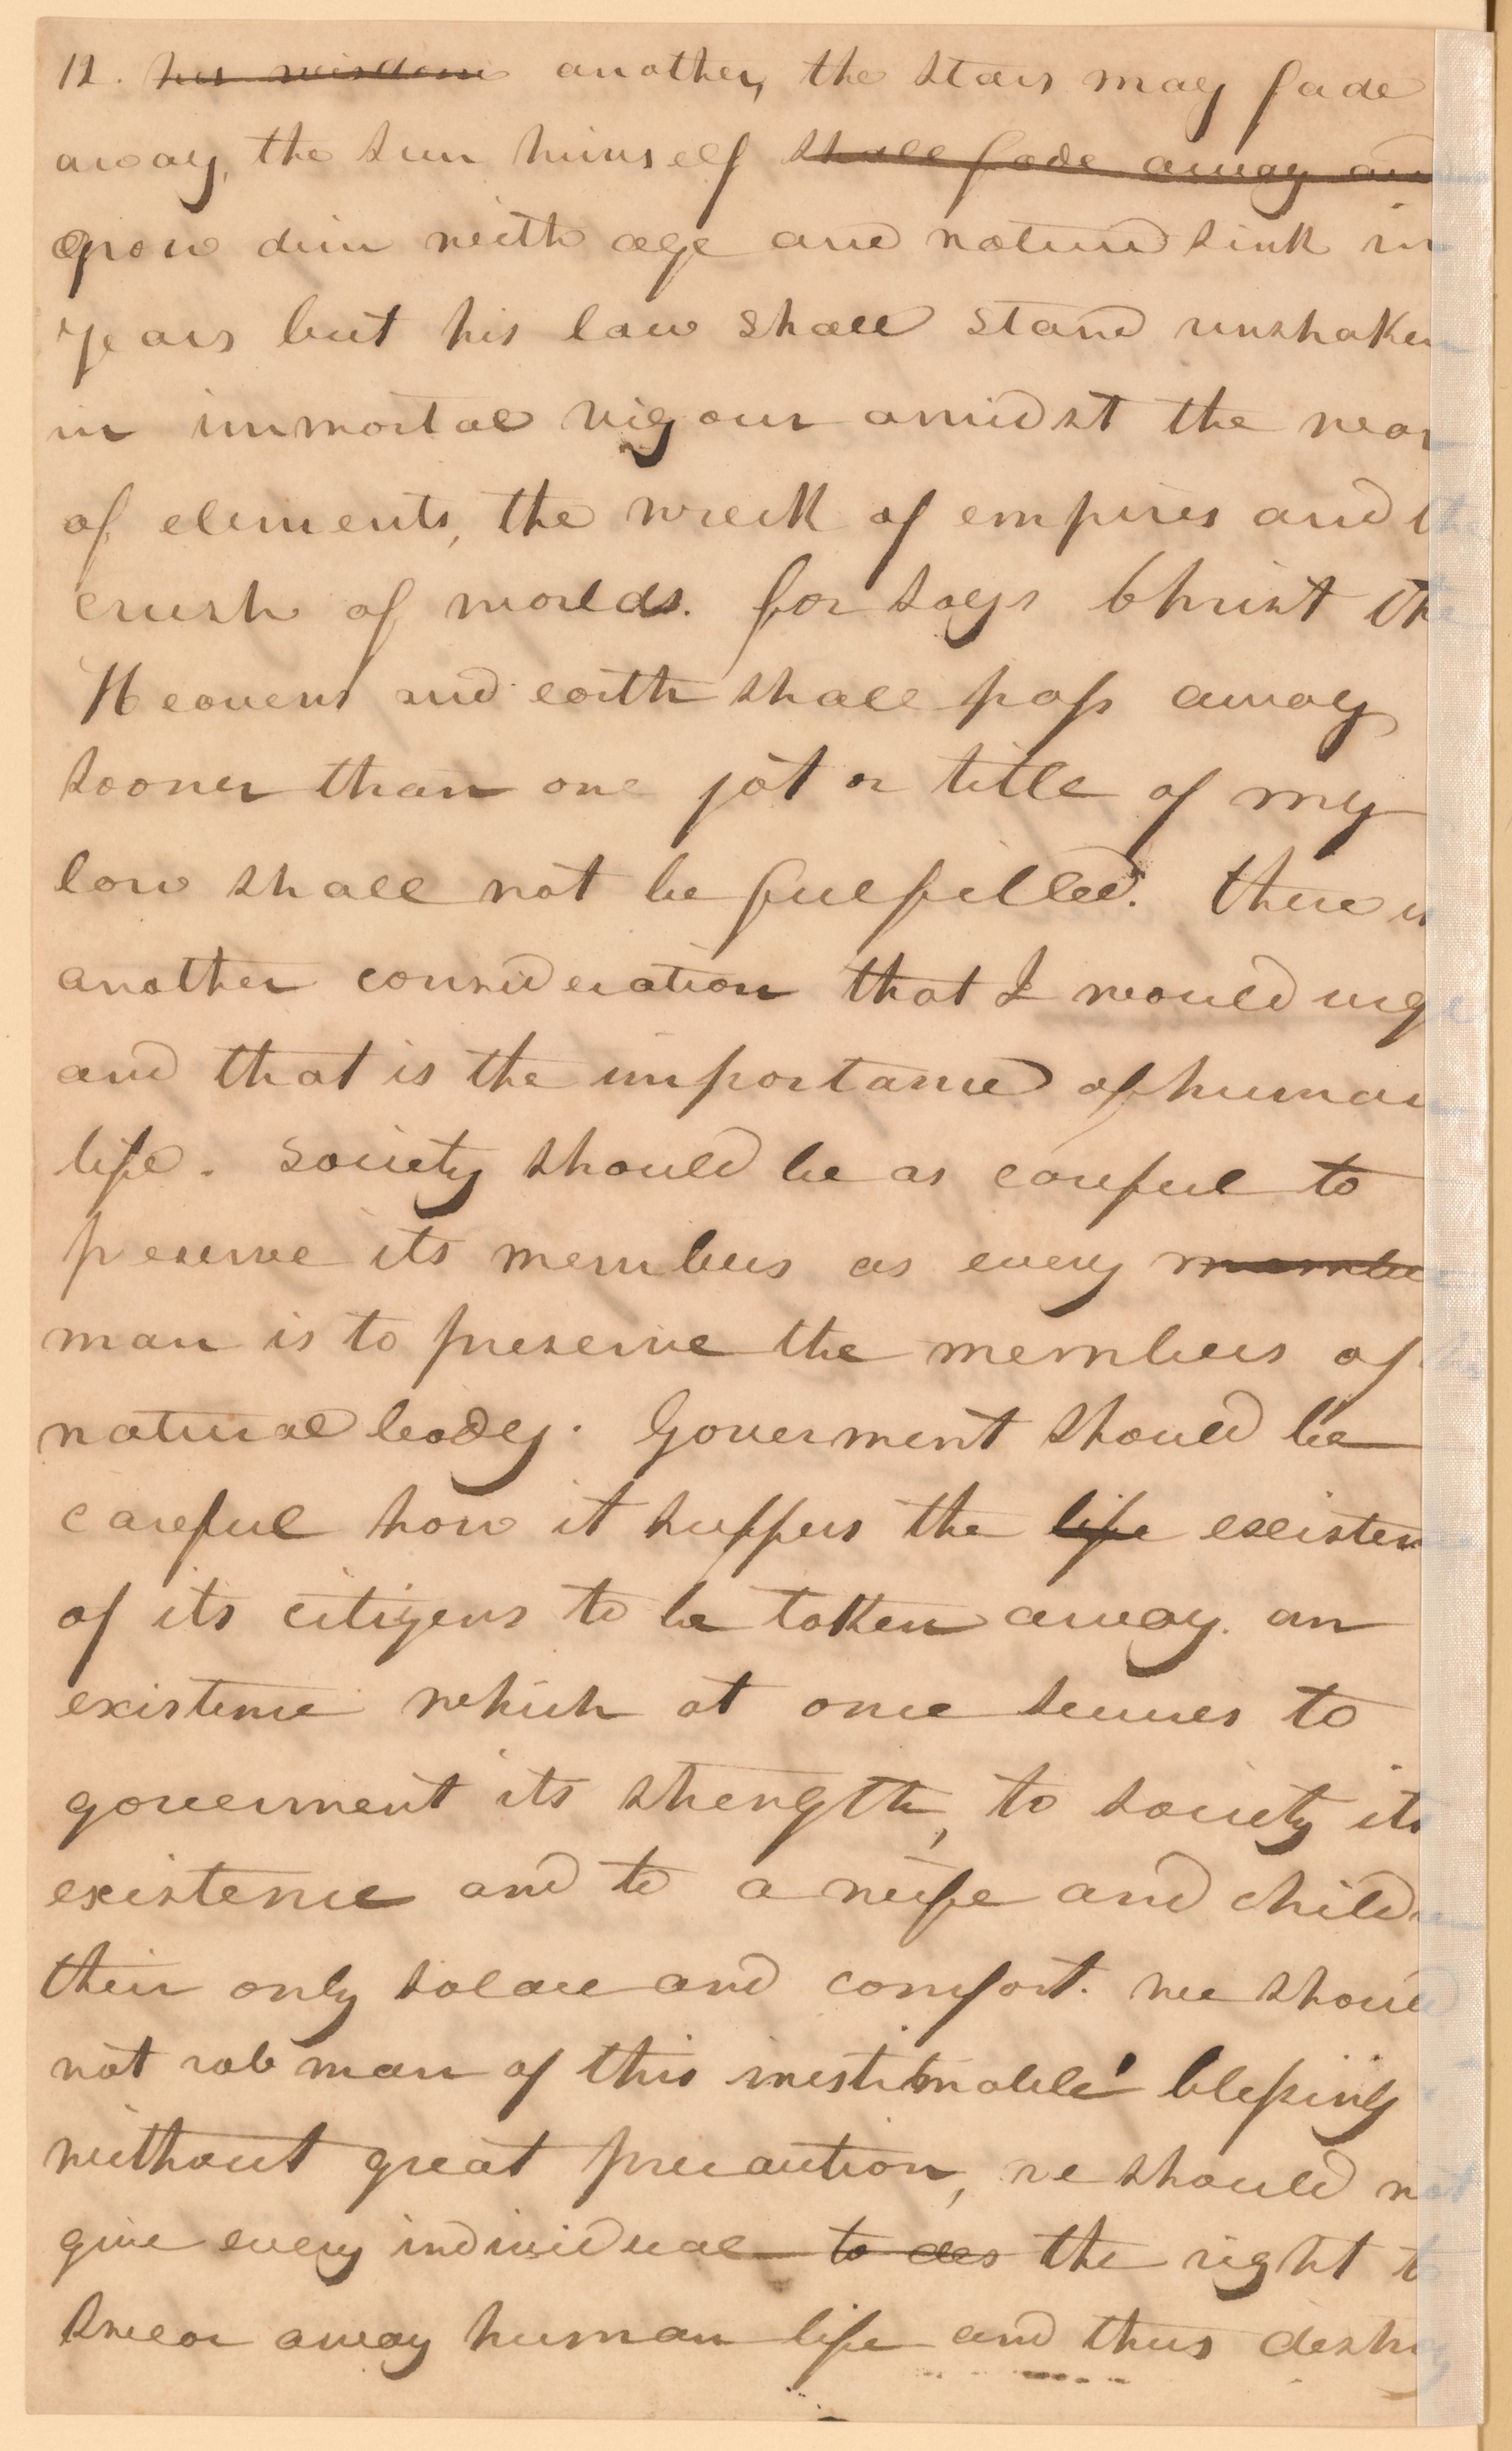 12. his wisdom another, the stars may fade
away, the sun himself shall fade away and
grow dim with age and nature sink in
years but his law shall stand unshaken
in immortal vigour amidst the war
of elements, the wreck of empires and the
crush of worlds. for says Christ the
Heavens and earth shall pass away
sooner than one jot or title of my
law shall not be fulfilled. there is
another consideration that I would urge
and that is the importance of human
life. Society should be as careful to
preserve its members as every member
man is to preserve the members of
natural body. Goverment should be
careful how it suffers the life existen
of its citizens to be taken away. an
existence which at once secures to
goverment its strength, to society its
existence and to a wife and children
their only solace and comfort. we should
not rob man of this inestimable blessing
without great precaution, we should not
give every individual to des the right to
swear away human life and thus destroy